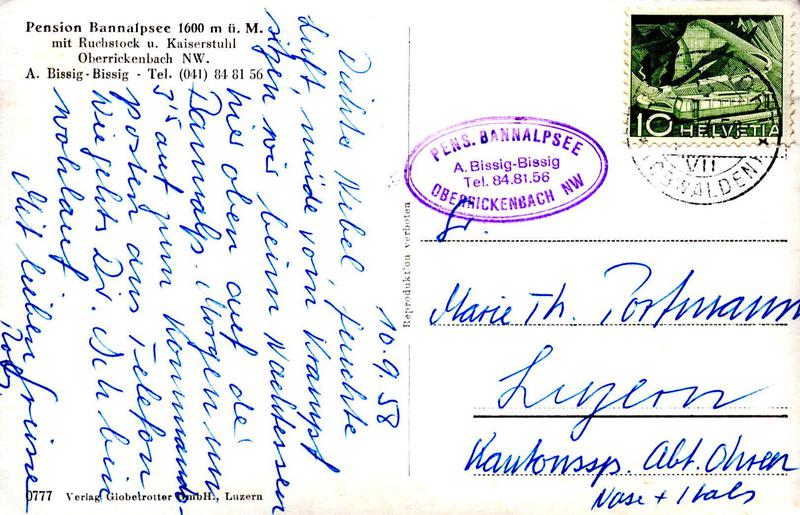 Pension Bannalpsee 1600 m ü. M.
mit Ruchstock u. Kaiserstuhl
Oberrickenbach NW.
A. Bissig-Bissig - Tel. (041) 84 81 56
10.9.58
Dichte Nebel, feuchte
Luft, müde vom Krampf
sitzen wir beim Nachtessen
hier oben auf de
Bannalp. Morgen um
auf zum Kommando-
posten ans Telefon
Wie gehts Dir. Ich bin
wohlauf
Mit lieben Grüsse
0777 Verlag Globetrotter GmbH., Luzern
Reproduktion verboten
PENS. BANNALPSEE
A. Bissig-Bissig
Tel. 84.81.56
OBERRICKENBACH NW
10 HELVETIA
VII
(OBWALDEN)
Fr.
Marie Th. Portmann
Luzern
Kantonssp. Abt. Ohren
Nase + Hals